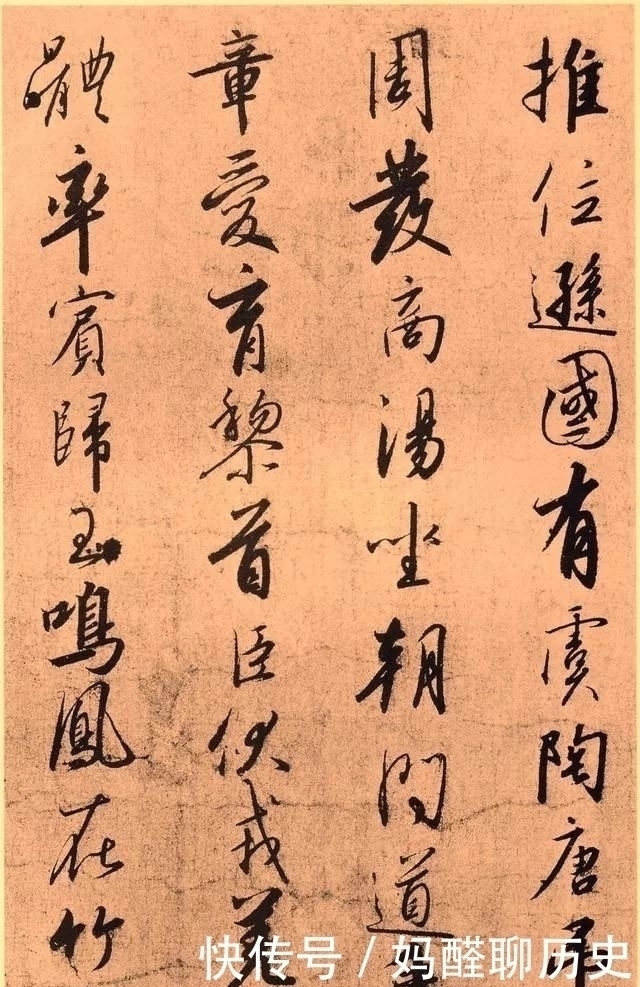 推位遜國有虞陶唐弔
周發商湯坐朝問道
章愛育黎首臣伏戎羌
體率賓歸王鳴鳳在竹
快传号 / 妈醛聊历史